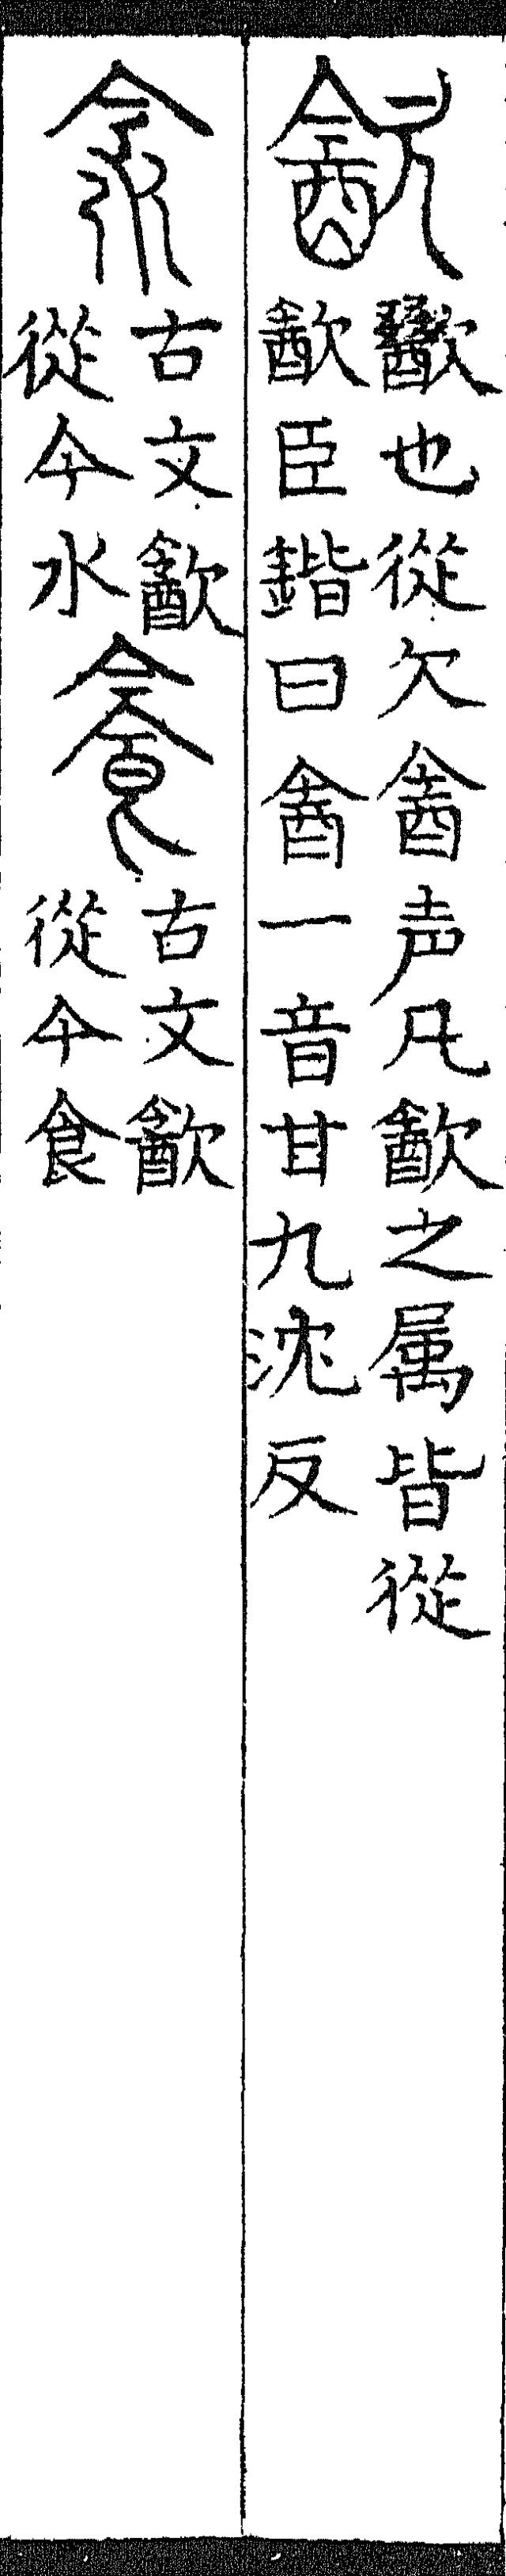 㱃
歠也從欠酓声凡㱃之属皆從
㱃臣鍇曰酓一音甘九沈反
𣲎
古文㱃
從今水
𩚜
古文㱃
從今食